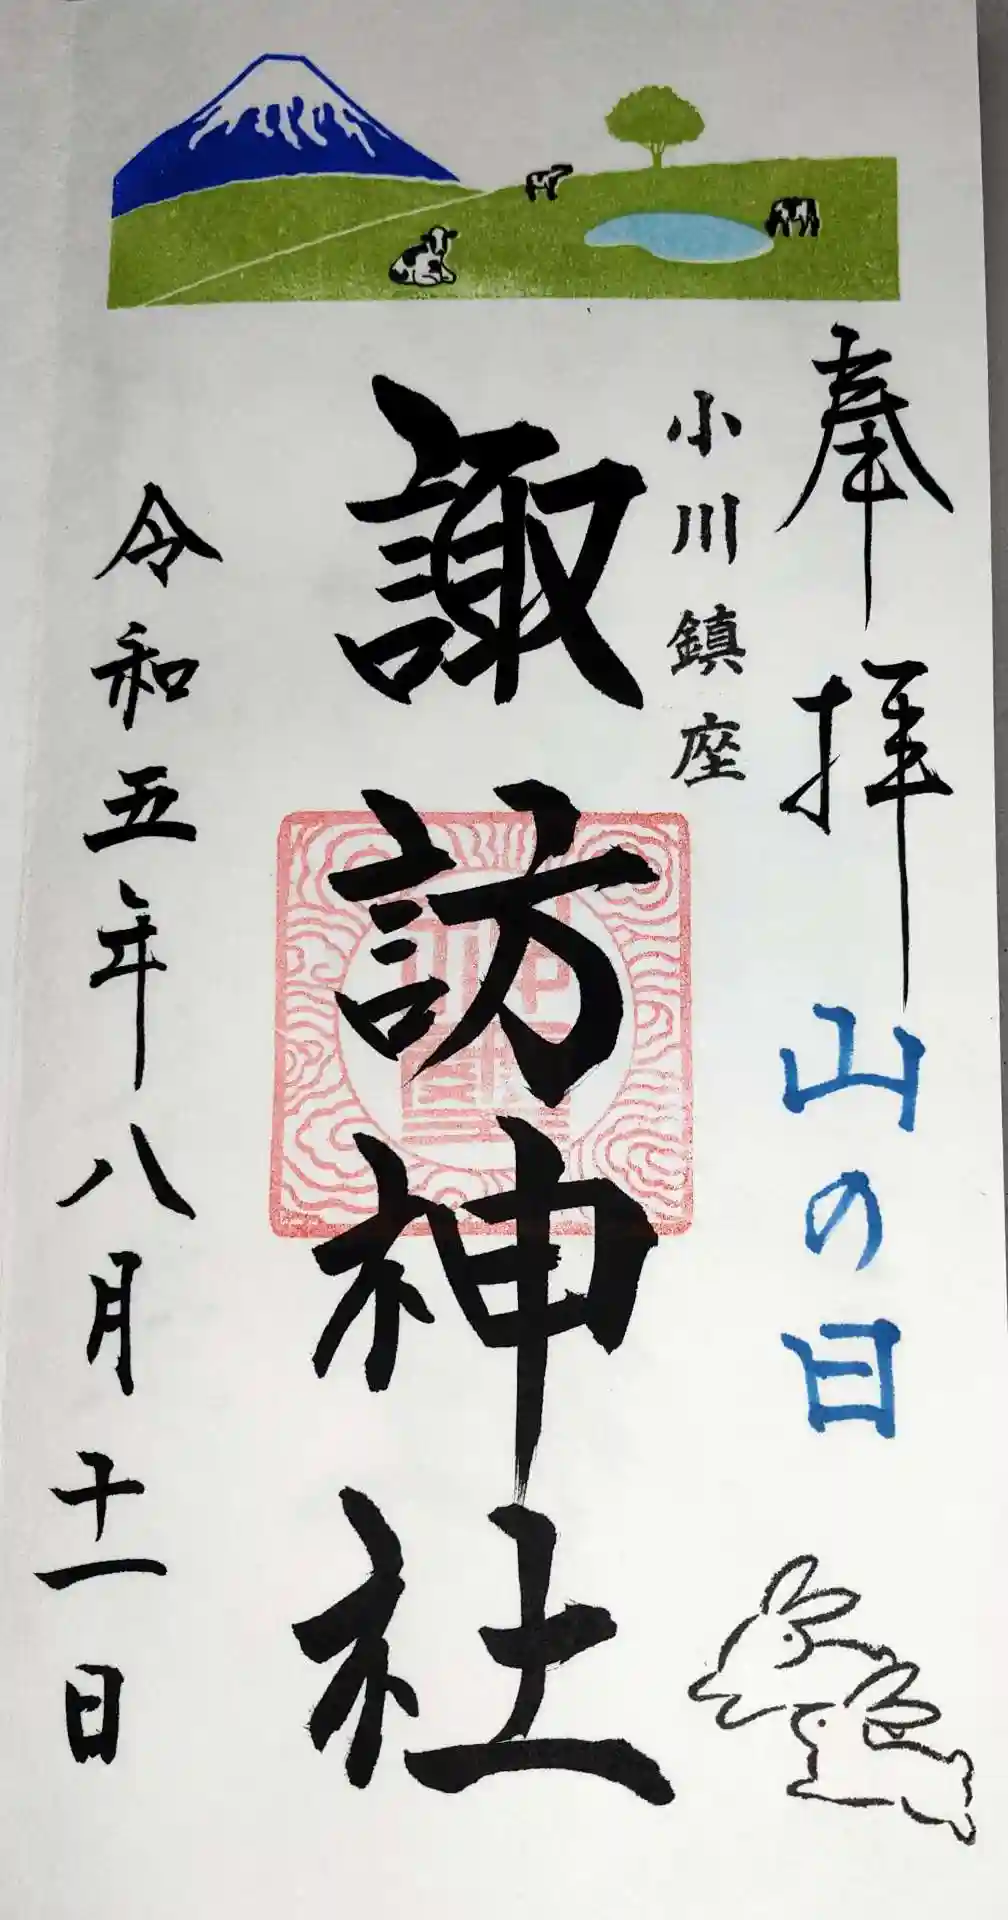 奉拝
山の日
小川鎮座
諏訪神社
令和五年八月十一日